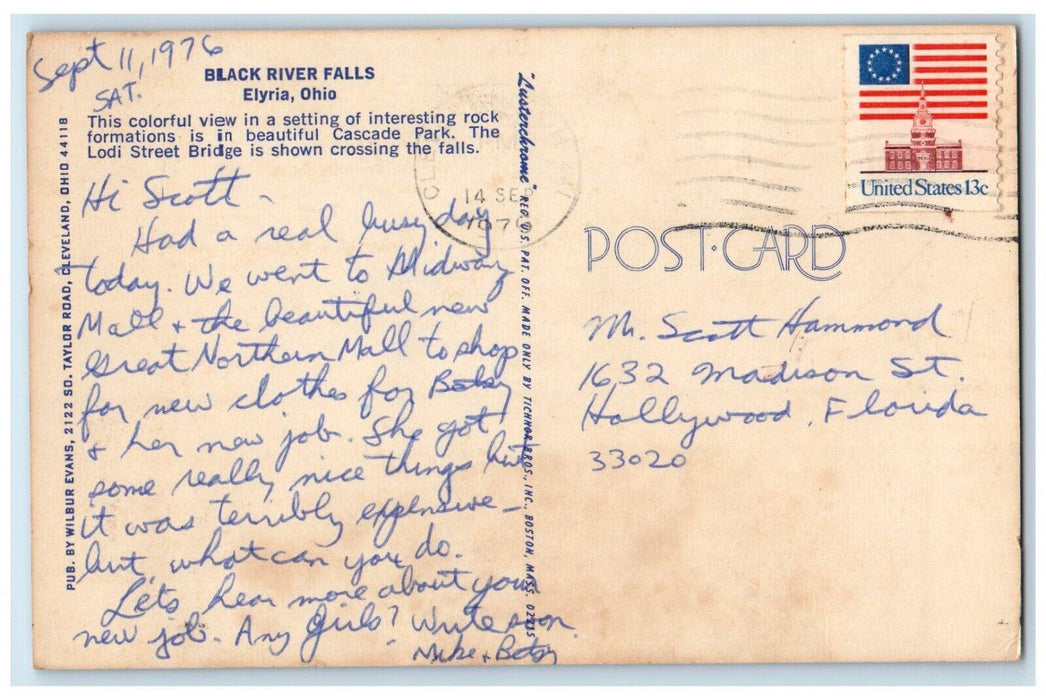 Sept 11, 1976
SAT.
BLACK RIVER FALLS
Elyria, Ohio
This colorful view in a setting of interesting rock
formations is in beautiful Cascade Park. The
Lodi Street Bridge is shown crossing the falls.
Hi Scott -
Had a real busy day
today. We went to Midway
Mall + the beautiful new
Great Northern Mall to shop
for new clothes for Betsy
+ her new job. She got
some really nice things but
it was terribly expensive -
but what can you do.
Let's hear more about your
new job. Any girls? Write soon.
Mike + Betsy
PUB. BY WILBUR EVANS, 2122 SO. TAYLOR ROAD, CLEVELAND, OHIO 44118
"Lusterchrome" REG. U.S. PAT. OFF. MADE ONLY BY TICHNOR BROS., INC., BOSTON, MASS. 02215
14 SEP
1976
United States 13c
POST·CARD
Mr. Scott Hammond
1632 Madison St.
Hollywood, Florida
33020